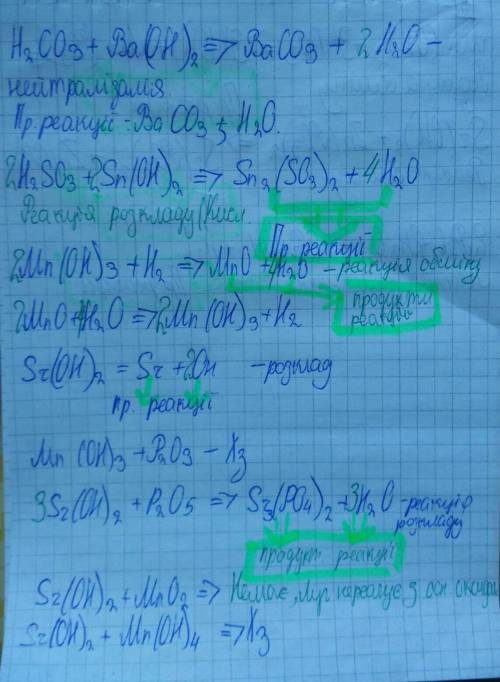 H2CO3 + Ba(OH)2 => BaCO3 + 2H2O –
нейтралізація
Пр. реакції - BaCO3 + H2O.
2H2SO3 + 2Sn(OH)2 => Sn2(SO3)2 + 4H2O
Реакція розкладу
Пр. реакції
2Mn(OH)3 + H2 => MnO + 4H2O – реакція обміну
продукти
реакції
2MnO + 4H2O => 2Mn(OH)3 + H2
Sr(OH)2 = Sr + 2OH – розклад
пр. реакції
Mn(OH)3 + P2O3 – Хз
3Sr(OH)2 + P2O5 => Sr3(PO4)2 + 3H2O – реакція
розкладу
продукт реакції
Sr(OH)2 + MnO2 => Немає, луг не реагує з осн оксид
Sr(OH)2 + Mn(OH)4 => Хз